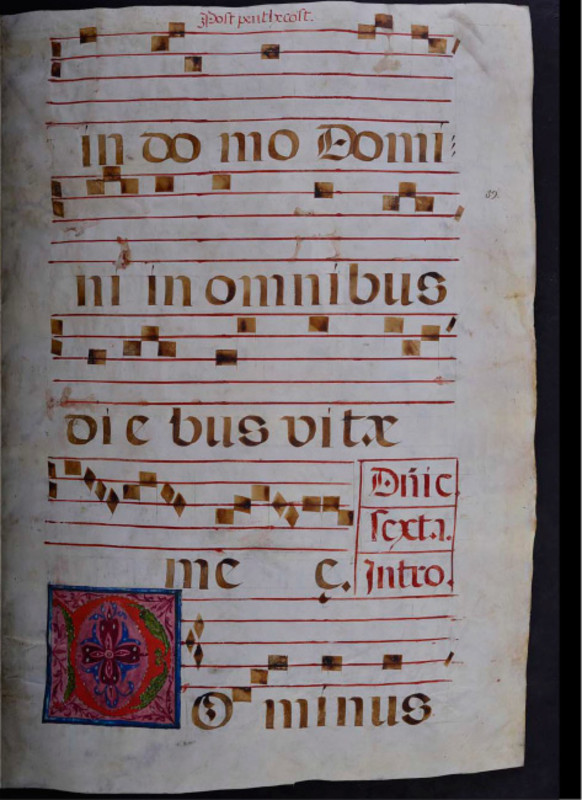 Post penthecost.
in do mo Domi
89.
ni in omnibus
die bus vitæ
me ę.
Dñic.
sexta.
Intro.
Ominus